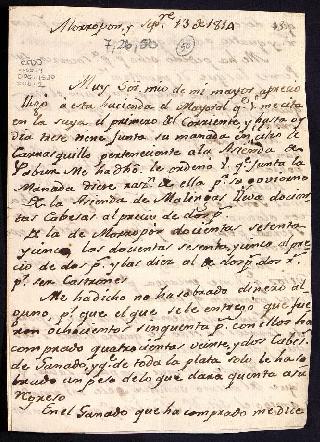 Morropon, y Sp.re 13 de 1814
7,26,50
50
Muy Sor mio de mi mayor aprecio
llego a esta hacienda el Mayoral q.e V. me cita
en la suya el primero del Corriente y hasta oy
dia tiene junta su manada en
perteneciente a la Asienda de
Me ha dho. le ordeno V. q.e junta la
Manada diese de ella p.a su govierno
De la Asienda de Malingas lleva docien
tas Cabesas al precio de dos p.s
De la de Morropon docientas setenta
y cinco, las docientas sesenta, y cinco al pre
cio de dos p.s y las diez al de dos p.s dos r.s
p.r ser Castrones
Me ha dicho no ha sobrado dinero al
guno, p.r que el que se le entrego que fue
ron ochocientos sinquenta p.s con ellos ha
comprado quatrocientas veinte, y dos Cabes.s
de Ganado, y q.e de toda la plata solo le ha so
brado un peso de lo que dará quenta a su
regreso
En el Ganado que ha comprado me dice